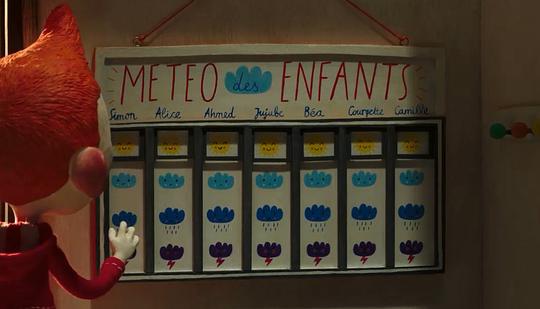 METEO des ENFANTS
Simon Alice Ahmed Jujube Béa Courgette Camille